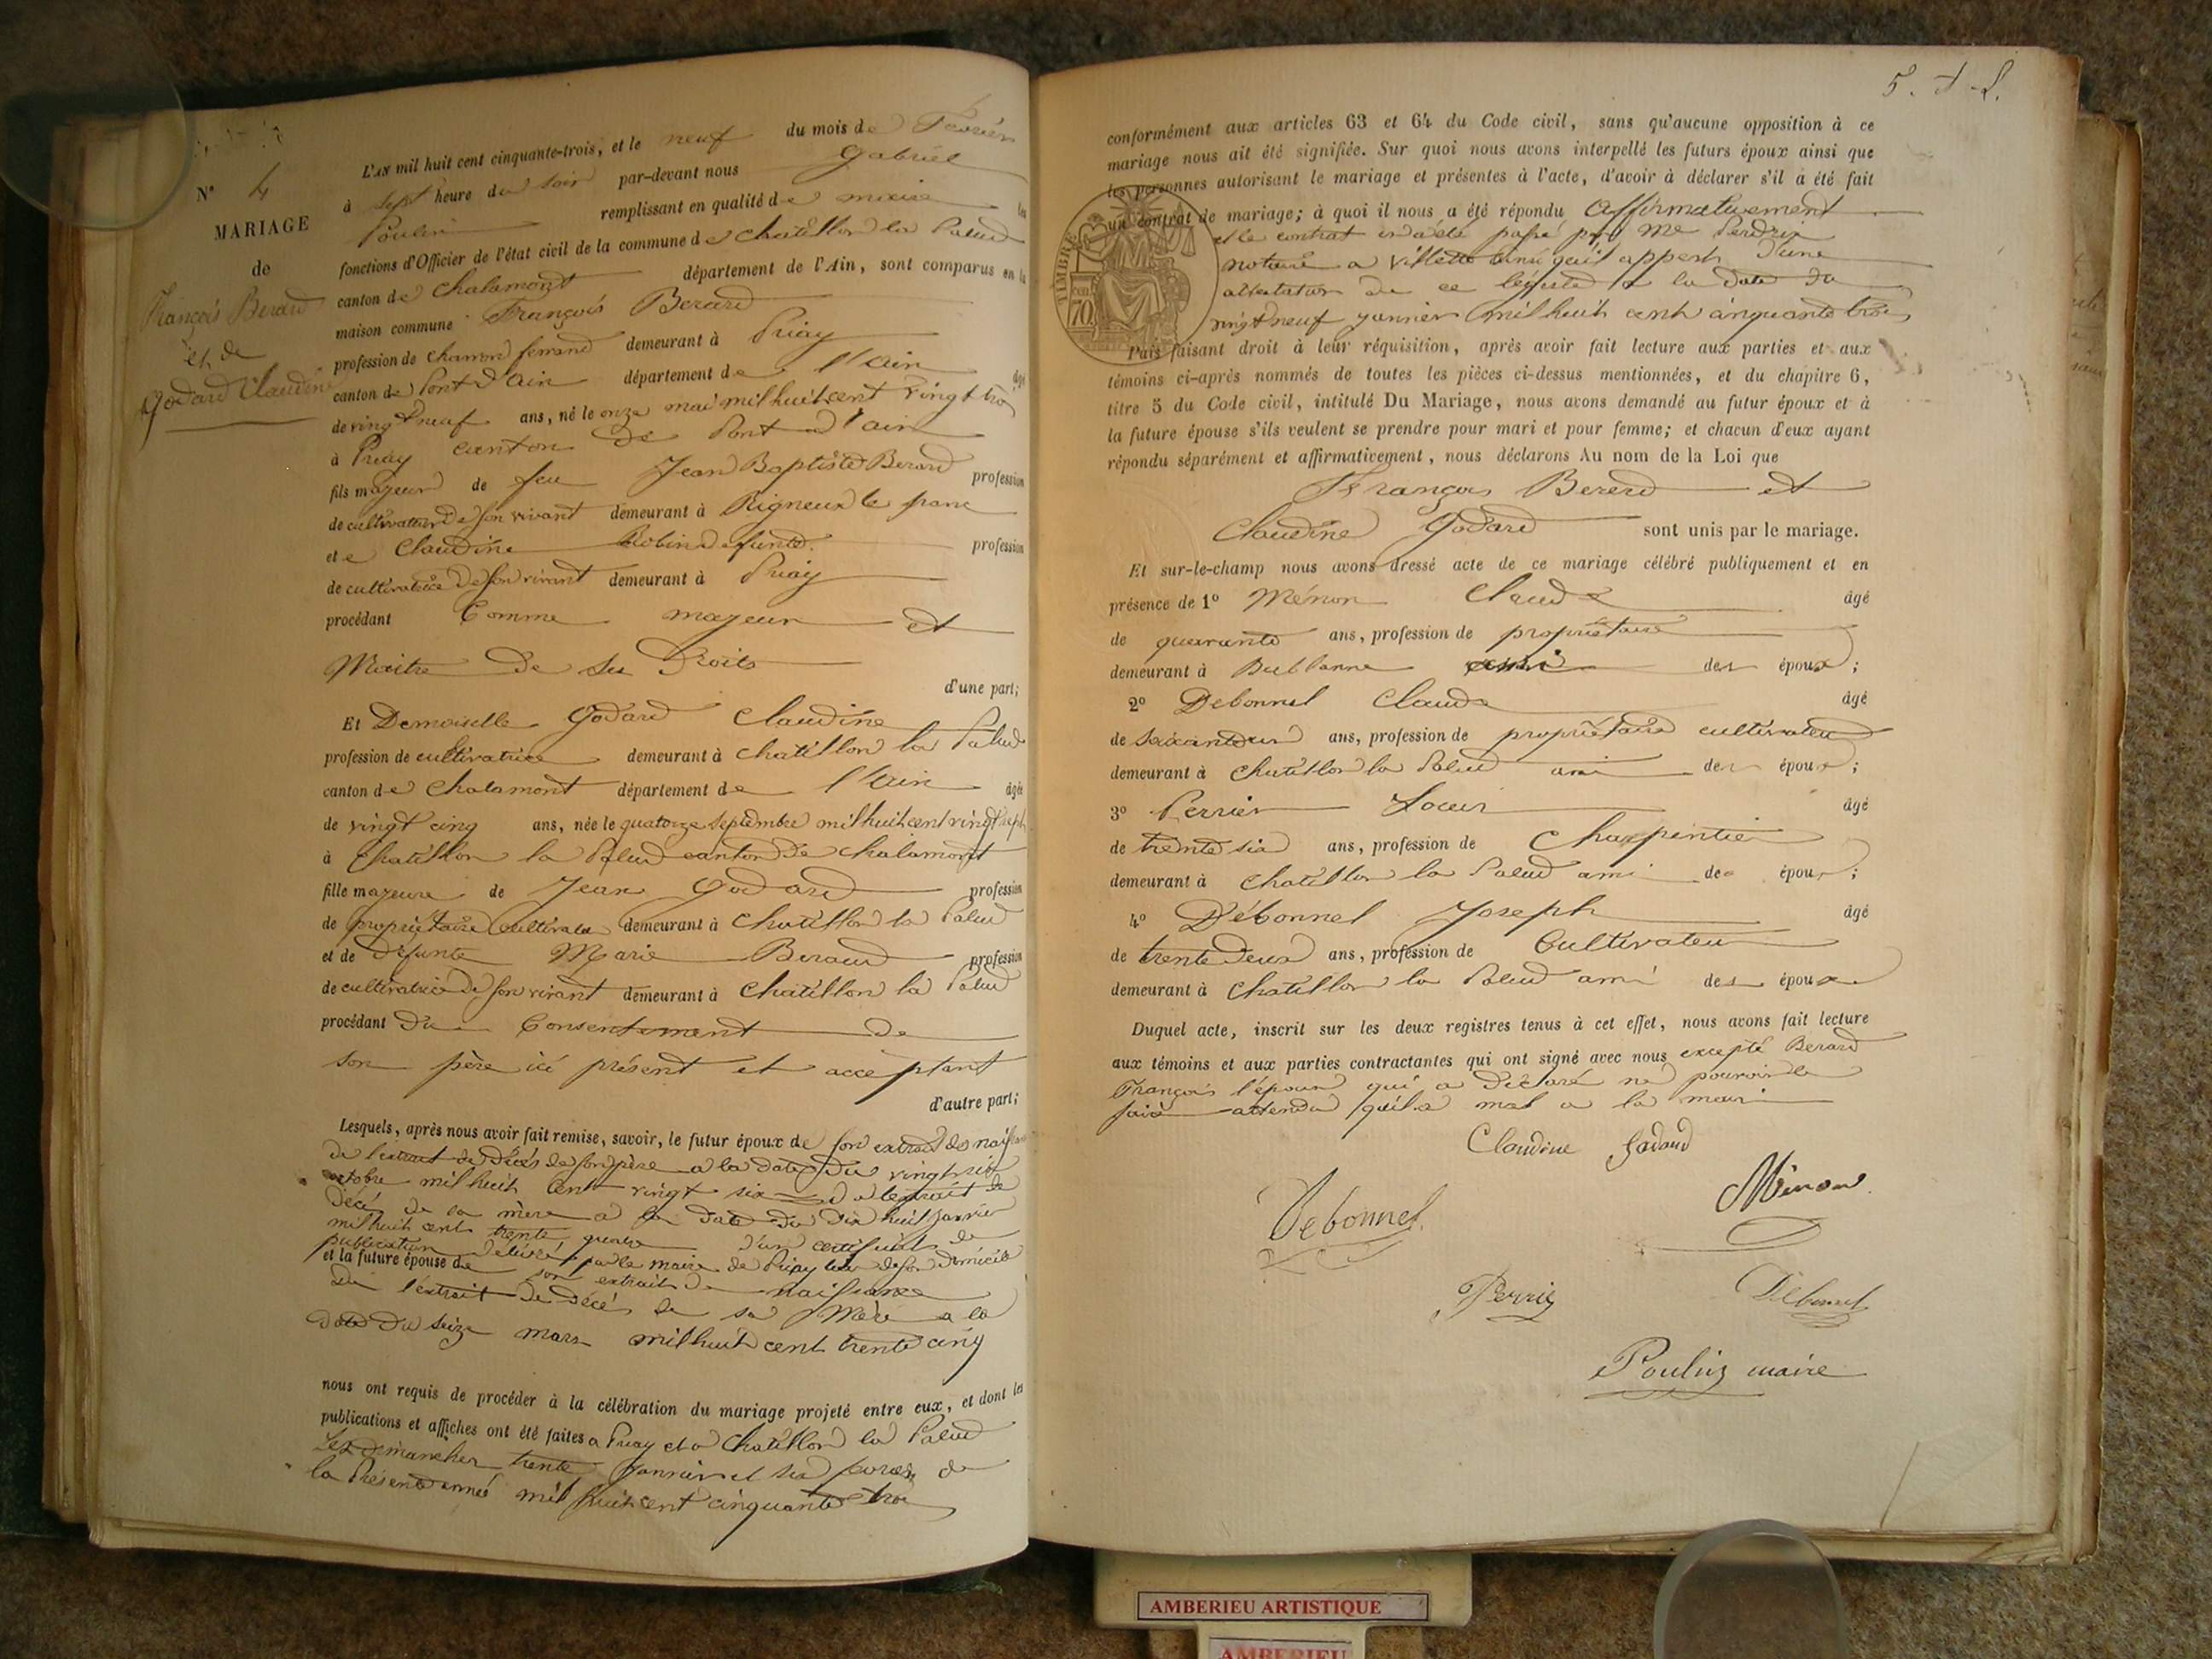 N° 4
MARIAGE
de
François Berard
et de
Godard Claudine
L'AN mil huit cent cinquante-trois, et le neuf du mois de Février
à sept heure du soir par-devant nous Gabriel
Poulin remplissant en qualité de maire les
fonctions d'Officier de l'état civil de la commune de Chatillon la Palud
canton de Chalamont département de l'Ain, sont comparus en la
maison commune François Berard
profession de charron ferrand demeurant à Priay
canton de Pont d'ain département de l'Ain âgé
de vingt neuf ans, né le onze mai mil huit cent vingt trois
à Priay canton de Pont d'ain
fils majeur de feu Jean Baptiste Berard profession
de cultivateur de son vivant demeurant à Rigneux le franc
et e Claudine Robin defunte profession
de cultivatrice de son vivant demeurant à Priay
procédant Comme majeur et
Maitre de ses Droits
d'une part;
Et Demoiselle Godard Claudine
profession de cultivatrice demeurant à Chatillon la Palud
canton de Chalamont département de l'Ain âgée
de vingt cinq ans, née le quatorze septembre mil huit cent vingt sept
à Chatillon la Palud canton de Chalamont
fille majeure de Jean Godard profession
de propriétaire Cultivateur demeurant à Chatillon la Palud
et de défunte Marie Beraud profession
de cultivatrice de son vivant demeurant à Chatillon la Palud
procédant du Consentement de
son père ici présent et acceptant
d'autre part;
Lesquels, après nous avoir fait remise, savoir, le futur époux de son extrait de naissance
de l'extrait de décès de son père a la date du vingt six
octobre mil huit cent vingt six de l'extrait de
décès de sa mère a la date du dix huit janvier
mil huit cent trente quatre d'un certificat de
publication délivré par le maire de Priay lieu de son domicile
et la future épouse de son extrait de naissance
de l'extrait de décès de sa Mère a la
date du seize mars mil huit cent trente cinq
nous ont requis de procéder à la célébration du mariage projeté entre eux, et dont les
publications et affiches ont été faites a Priay et a Chatillon la Palud
Les dimanches trente janvier et six février de
la Présente année mil huit cent cinquante trois
conformément aux articles 63 et 64 du Code civil, sans qu'aucune opposition à ce
mariage nous ait été signifiée. Sur quoi nous avons interpellé les futurs époux ainsi que
les personnes autorisant le mariage et présentes à l'acte, d'avoir à déclarer s'il a été fait
un contrat de mariage; à quoi il nous a été répondu affirmativement
et le contrat en a été passé par Me Perdrix
notaire a Villette ainsi qu'il appert d'une
attestation de ce légiste a la date du
vingt neuf janvier mil huit cent cinquante trois
TIMBRE
70
Puis faisant droit à leur réquisition, après avoir fait lecture aux parties et aux
témoins ci-après nommés de toutes les pièces ci-dessus mentionnées, et du chapitre 6,
titre 5 du Code civil, intitulé Du Mariage, nous avons demandé au futur époux et à
la future épouse s'ils veulent se prendre pour mari et pour femme; et chacun d'eux ayant
répondu séparément et affirmativement, nous déclarons Au nom de la Loi que
François Berard et
Claudine Godard sont unis par le mariage.
Et sur-le-champ nous avons dressé acte de ce mariage célébré publiquement et en
présence de 1° Ménon Claude âgé
de quarante ans, profession de propriétaire
demeurant à Bublanne ami des époux;
2° Debonnel Claude âgé
de ans, profession de propriétaire cultivateur
demeurant à Chatillon la Palud ami des époux;
3° Perrier Louis âgé
de trente six ans, profession de Charpentier
demeurant à Chatillon la Palud ami des époux;
4° Débonnel Joseph âgé
de trente deux ans, profession de Cultivateur
demeurant à Chatillon la Palud ami des époux
Duquel acte, inscrit sur les deux registres tenus à cet effet, nous avons fait lecture
aux témoins et aux parties contractantes qui ont signé avec nous excepté Berard
François l'époux qui a déclaré ne pouvoir le
faire attendu qu'il a mal a la main
Claudine Godard
Debonnel Ménon
Perrier Debonnel
Poulin maire
AMBERIEU ARTISTIQUE
AMBERIEU